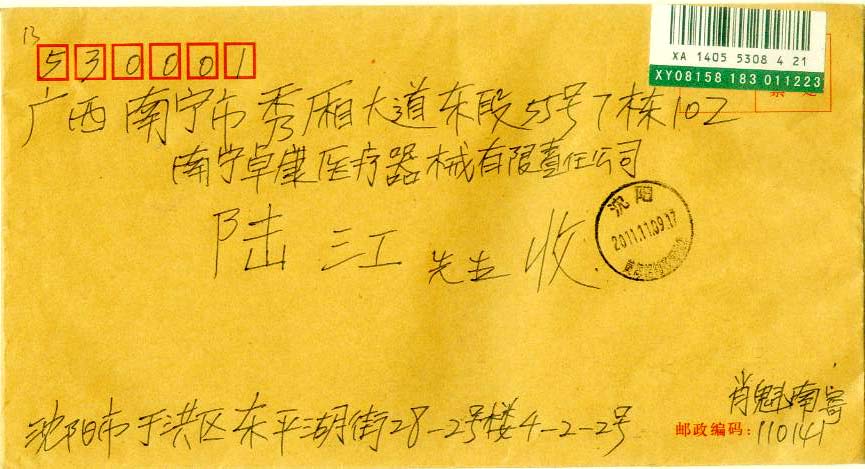 13
530001
XA 1405 5308 4 21
XY08158 183 011223
广西南宁市秀厢大道东段55号7栋102
南宁卓康医疗器械有限责任公司
陆江先生收
沈阳
2011.11.09.17
沈阳市于洪区东平湖街28-2号楼4-2-2号
肖魁南寄
邮政编码:110141